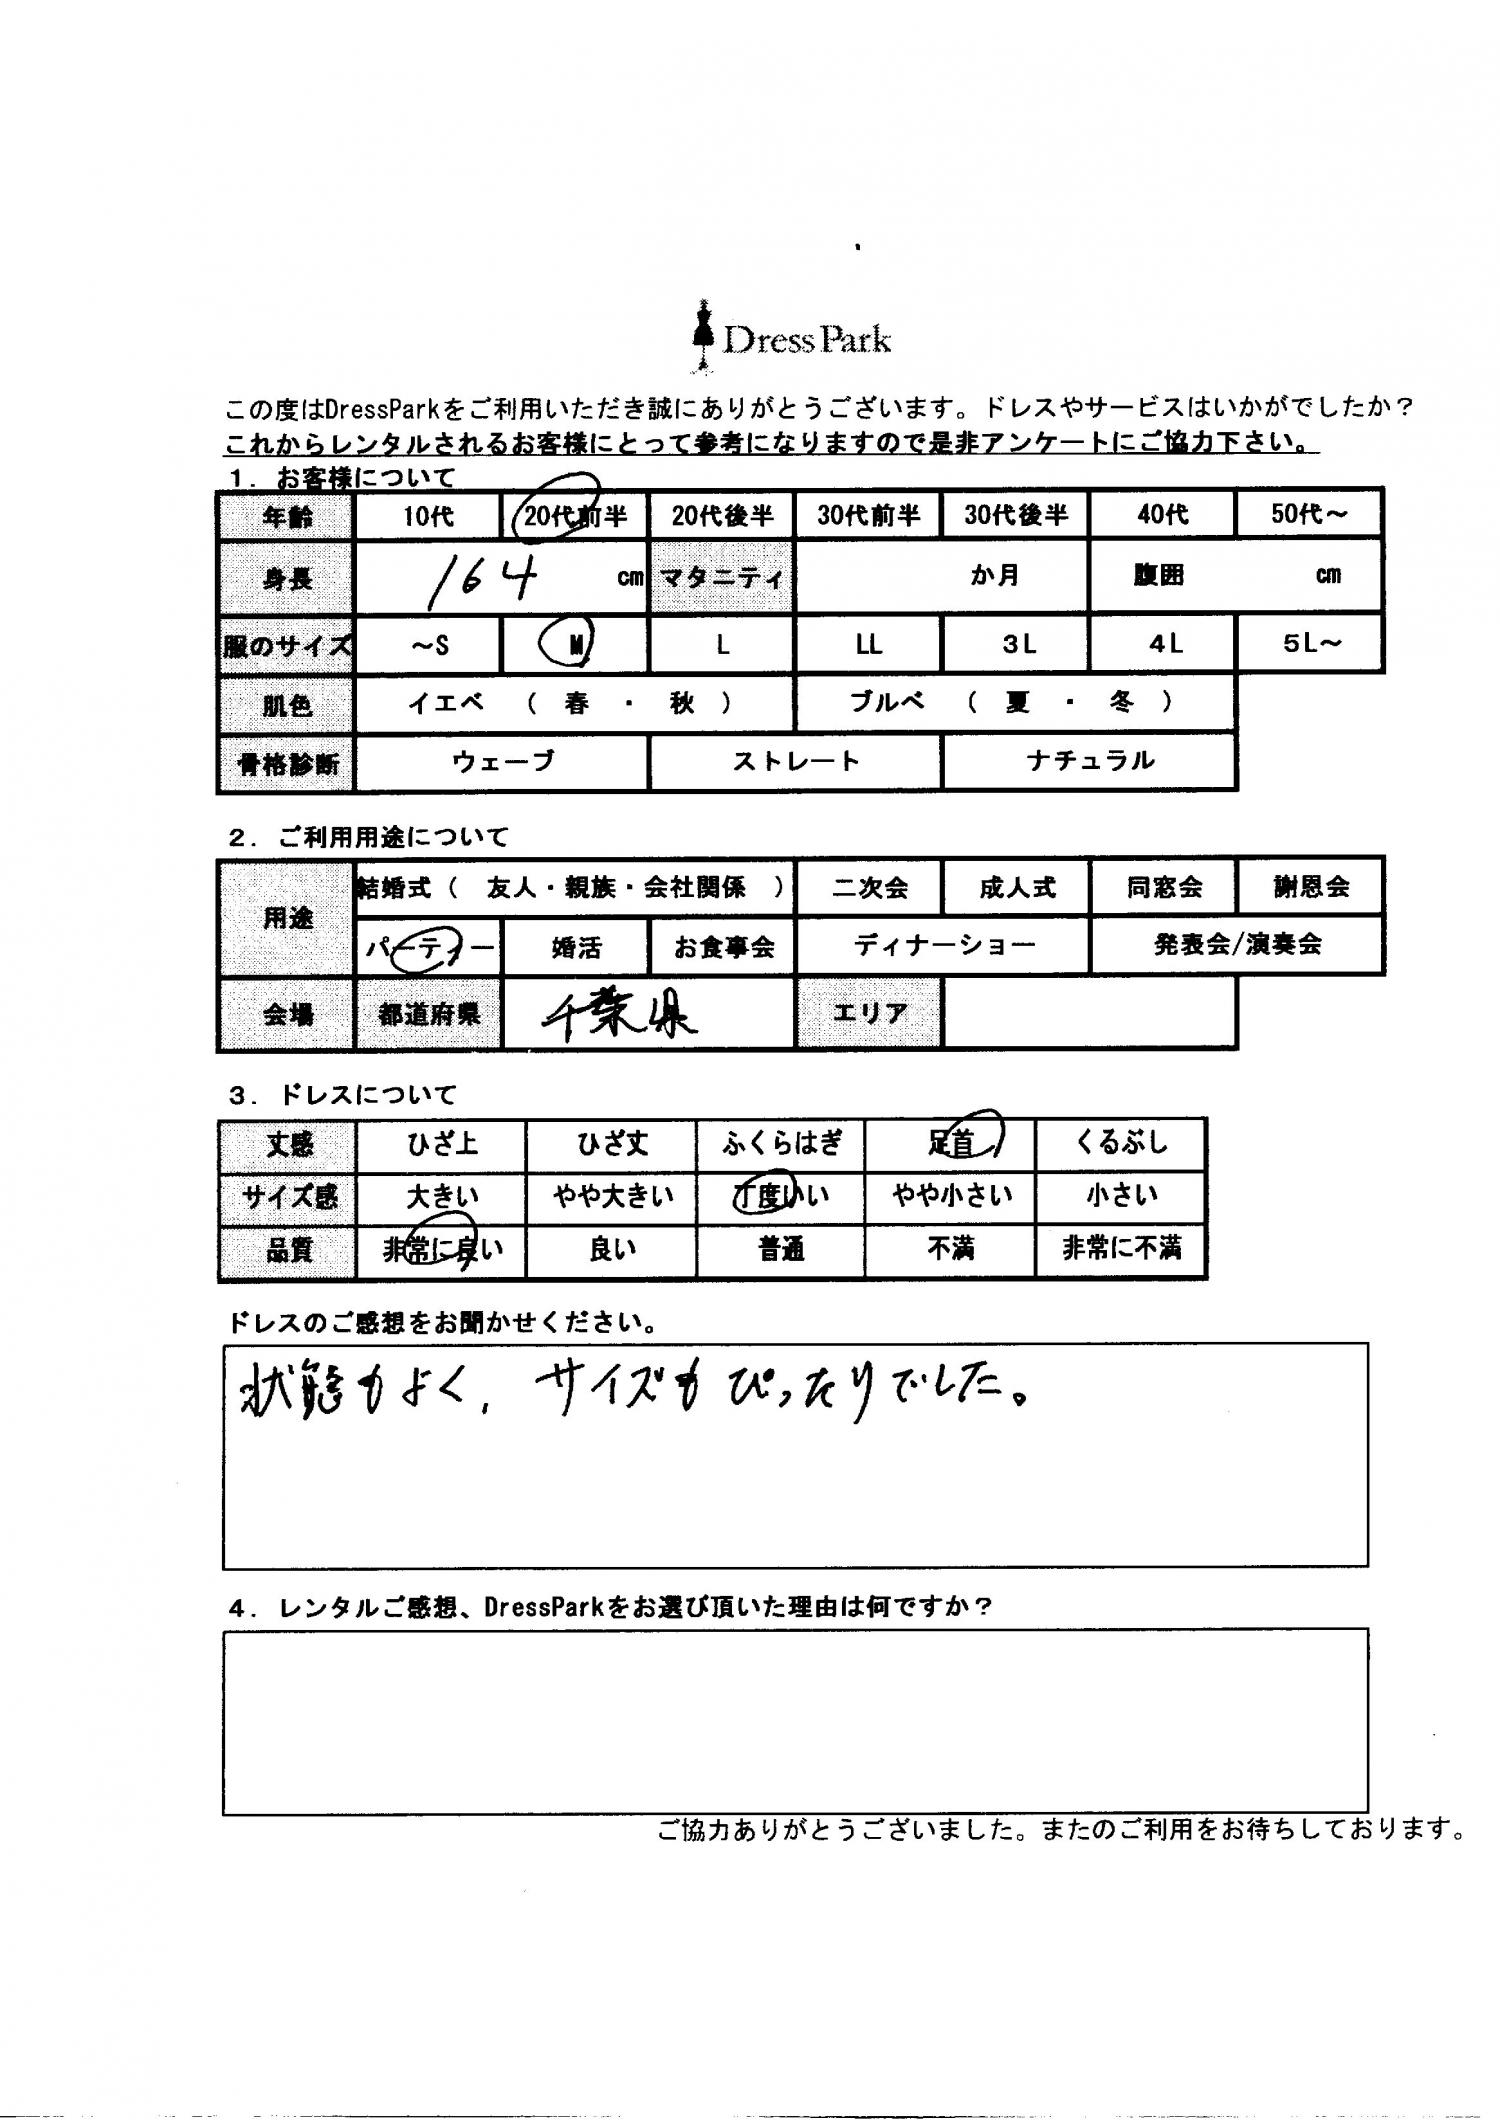 DressPark
この度はDressParkをご利用いただき誠にありがとうございます。ドレスやサービスはいかがでしたか？
これからレンタルされるお客様にとって参考になりますので是非アンケートにご協力下さい。
1. お客様について
年齢 10代 20代前半 20代後半 30代前半 30代後半 40代 50代～
身長 164 cm マタニティ か月 腹囲 cm
服のサイズ ～S M L LL 3L 4L 5L～
肌色 イエベ （ 春 ・ 秋 ） ブルベ （ 夏 ・ 冬 ）
骨格診断 ウェーブ ストレート ナチュラル
2. ご利用用途について
用途 結婚式（ 友人・親族・会社関係 ） 二次会 成人式 同窓会 謝恩会
パーティー 婚活 お食事会 ディナーショー 発表会/演奏会
会場 都道府県 千葉県 エリア
3. ドレスについて
丈感 ひざ上 ひざ丈 ふくらはぎ 足首 くるぶし
サイズ感 大きい やや大きい 丁度いい やや小さい 小さい
品質 非常に良い 良い 普通 不満 非常に不満
ドレスのご感想をお聞かせください。
状態もよく、サイズもぴったりでした。
4. レンタルご感想、DressParkをお選び頂いた理由は何ですか？
ご協力ありがとうございました。またのご利用をお待ちしております。